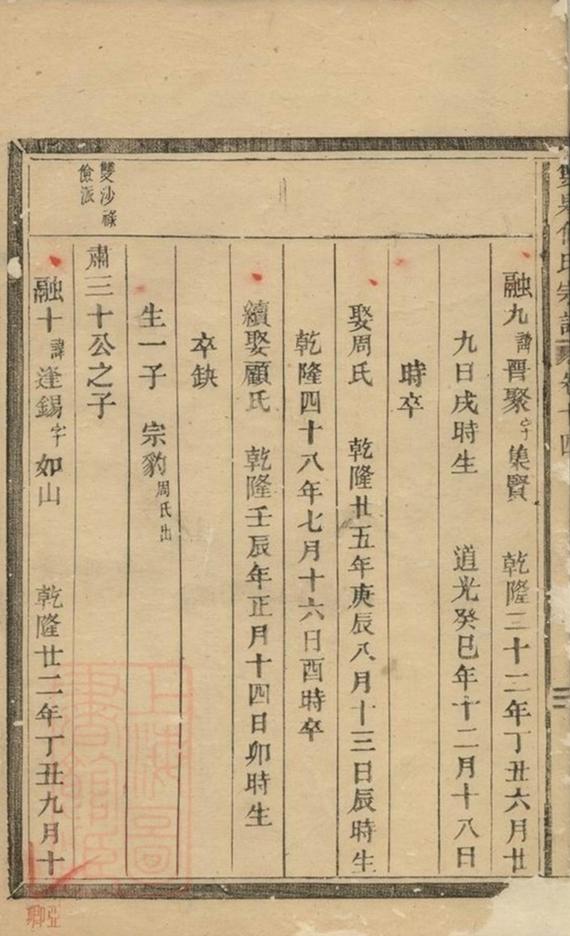 氏宗譜 卷十四
融九諱晉聚字集賢 乾隆三十二年丁丑六月廿
九日戌時生 道光癸巳年十二月十八日
時卒
娶周氏 乾隆廿五年庚辰八月十三日辰時生
乾隆四十八年七月十六日酉時卒
續娶顧氏 乾隆壬辰年正月十四日卯時生
卒缺
生一子 宗豹周氏出
雙沙祿
儉派
肅三十公之子
融十諱逢錫字如山 乾隆廿二年丁丑九月十